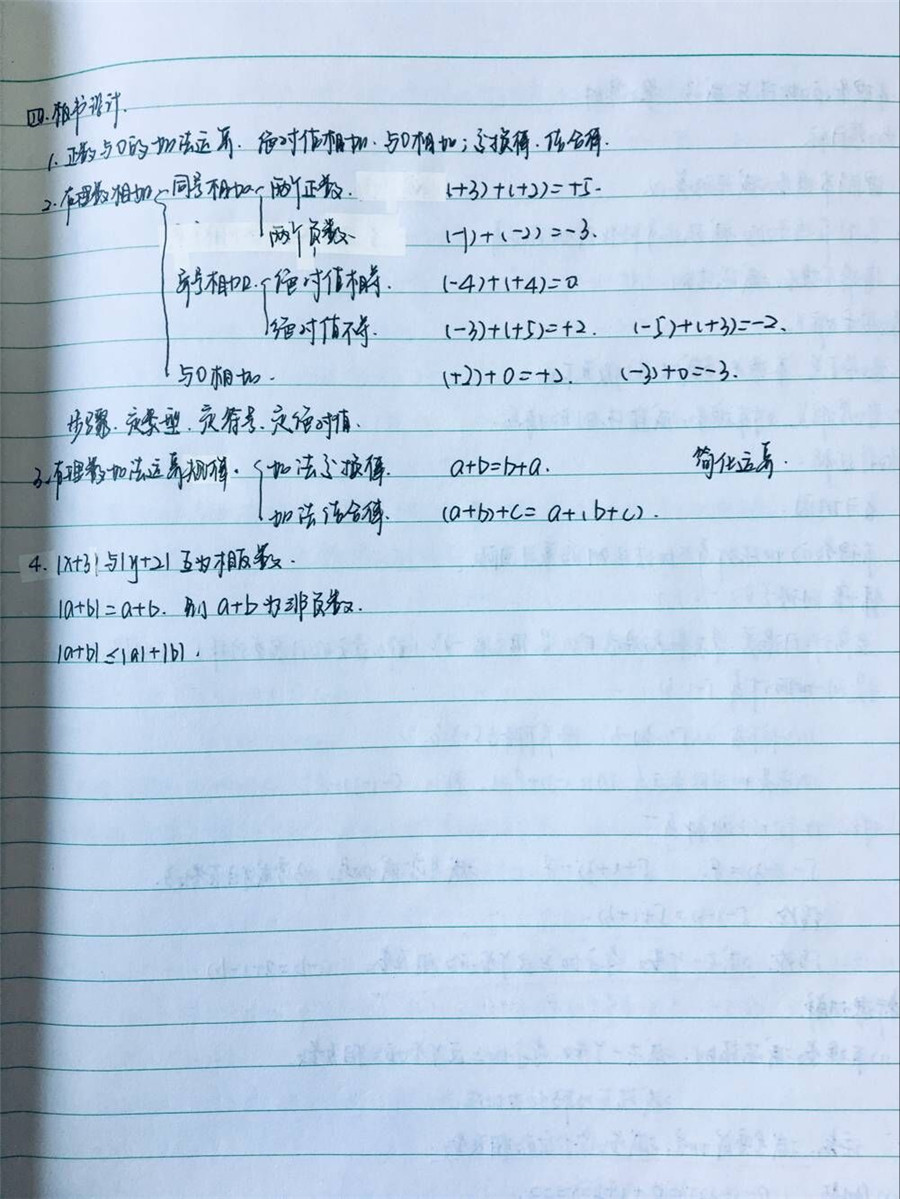 四.板书设计.
1. 正数与0的加法运算. 绝对值相加. 与0相加; 交换律. 结合律.
2. 有理数相加 同号相加 两个正数. (+3)+(+2)=+5.
两个负数. (-1)+(-2)=-3.
异号相加. 绝对值相等. (-4)+(+4)=0
绝对值不等. (-3)+(+5)=+2. (-5)+(+3)=-2.
与0相加. (+2)+0=+2. (-3)+0=-3.
步骤. 定类型. 定符号. 定绝对值.
3. 有理数加法运算规律. 加法交换律. a+b=b+a. 简化运算.
加法结合律. (a+b)+c=a+(b+c).
4. |x+3|与|y+2|互为相反数.
|a+b|=a+b. 则 a+b为非负数.
|a+b|≤|a|+|b|.